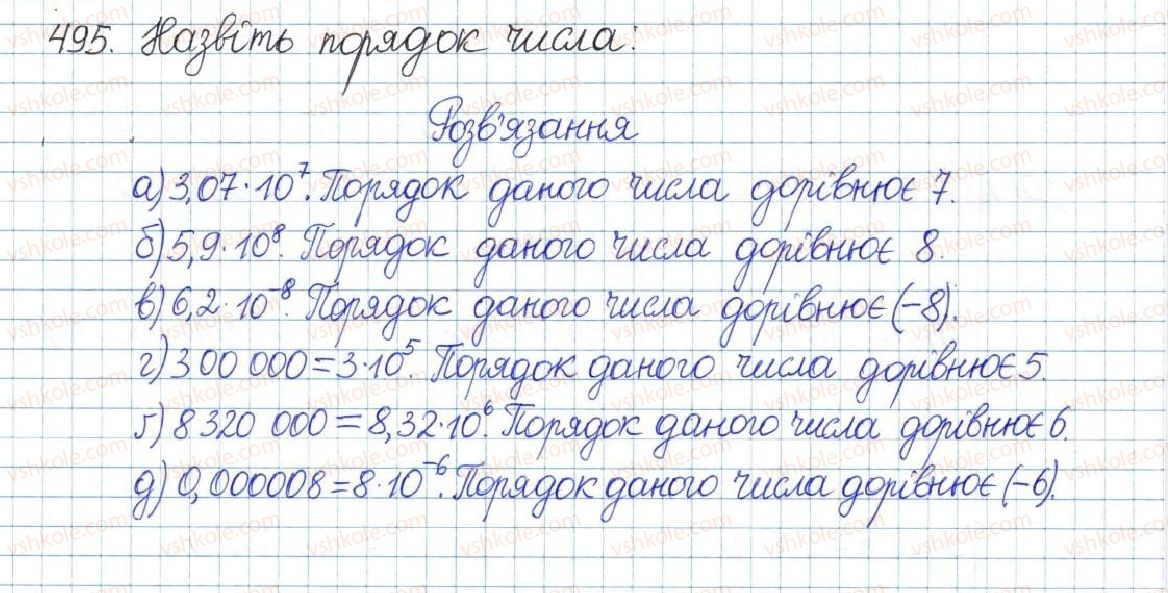 495. Назвіть порядок числа:
Розв'язання
а) 3,07·10⁷. Порядок даного числа дорівнює 7.
б) 5,9·10⁸. Порядок даного числа дорівнює 8.
в) 6,2·10⁻⁸. Порядок даного числа дорівнює (-8).
г) 300 000 = 3·10⁵. Порядок даного числа дорівнює 5.
ґ) 8 320 000 = 8,32·10⁶. Порядок даного числа дорівнює 6.
д) 0,000008 = 8·10⁻⁶. Порядок даного числа дорівнює (-6).